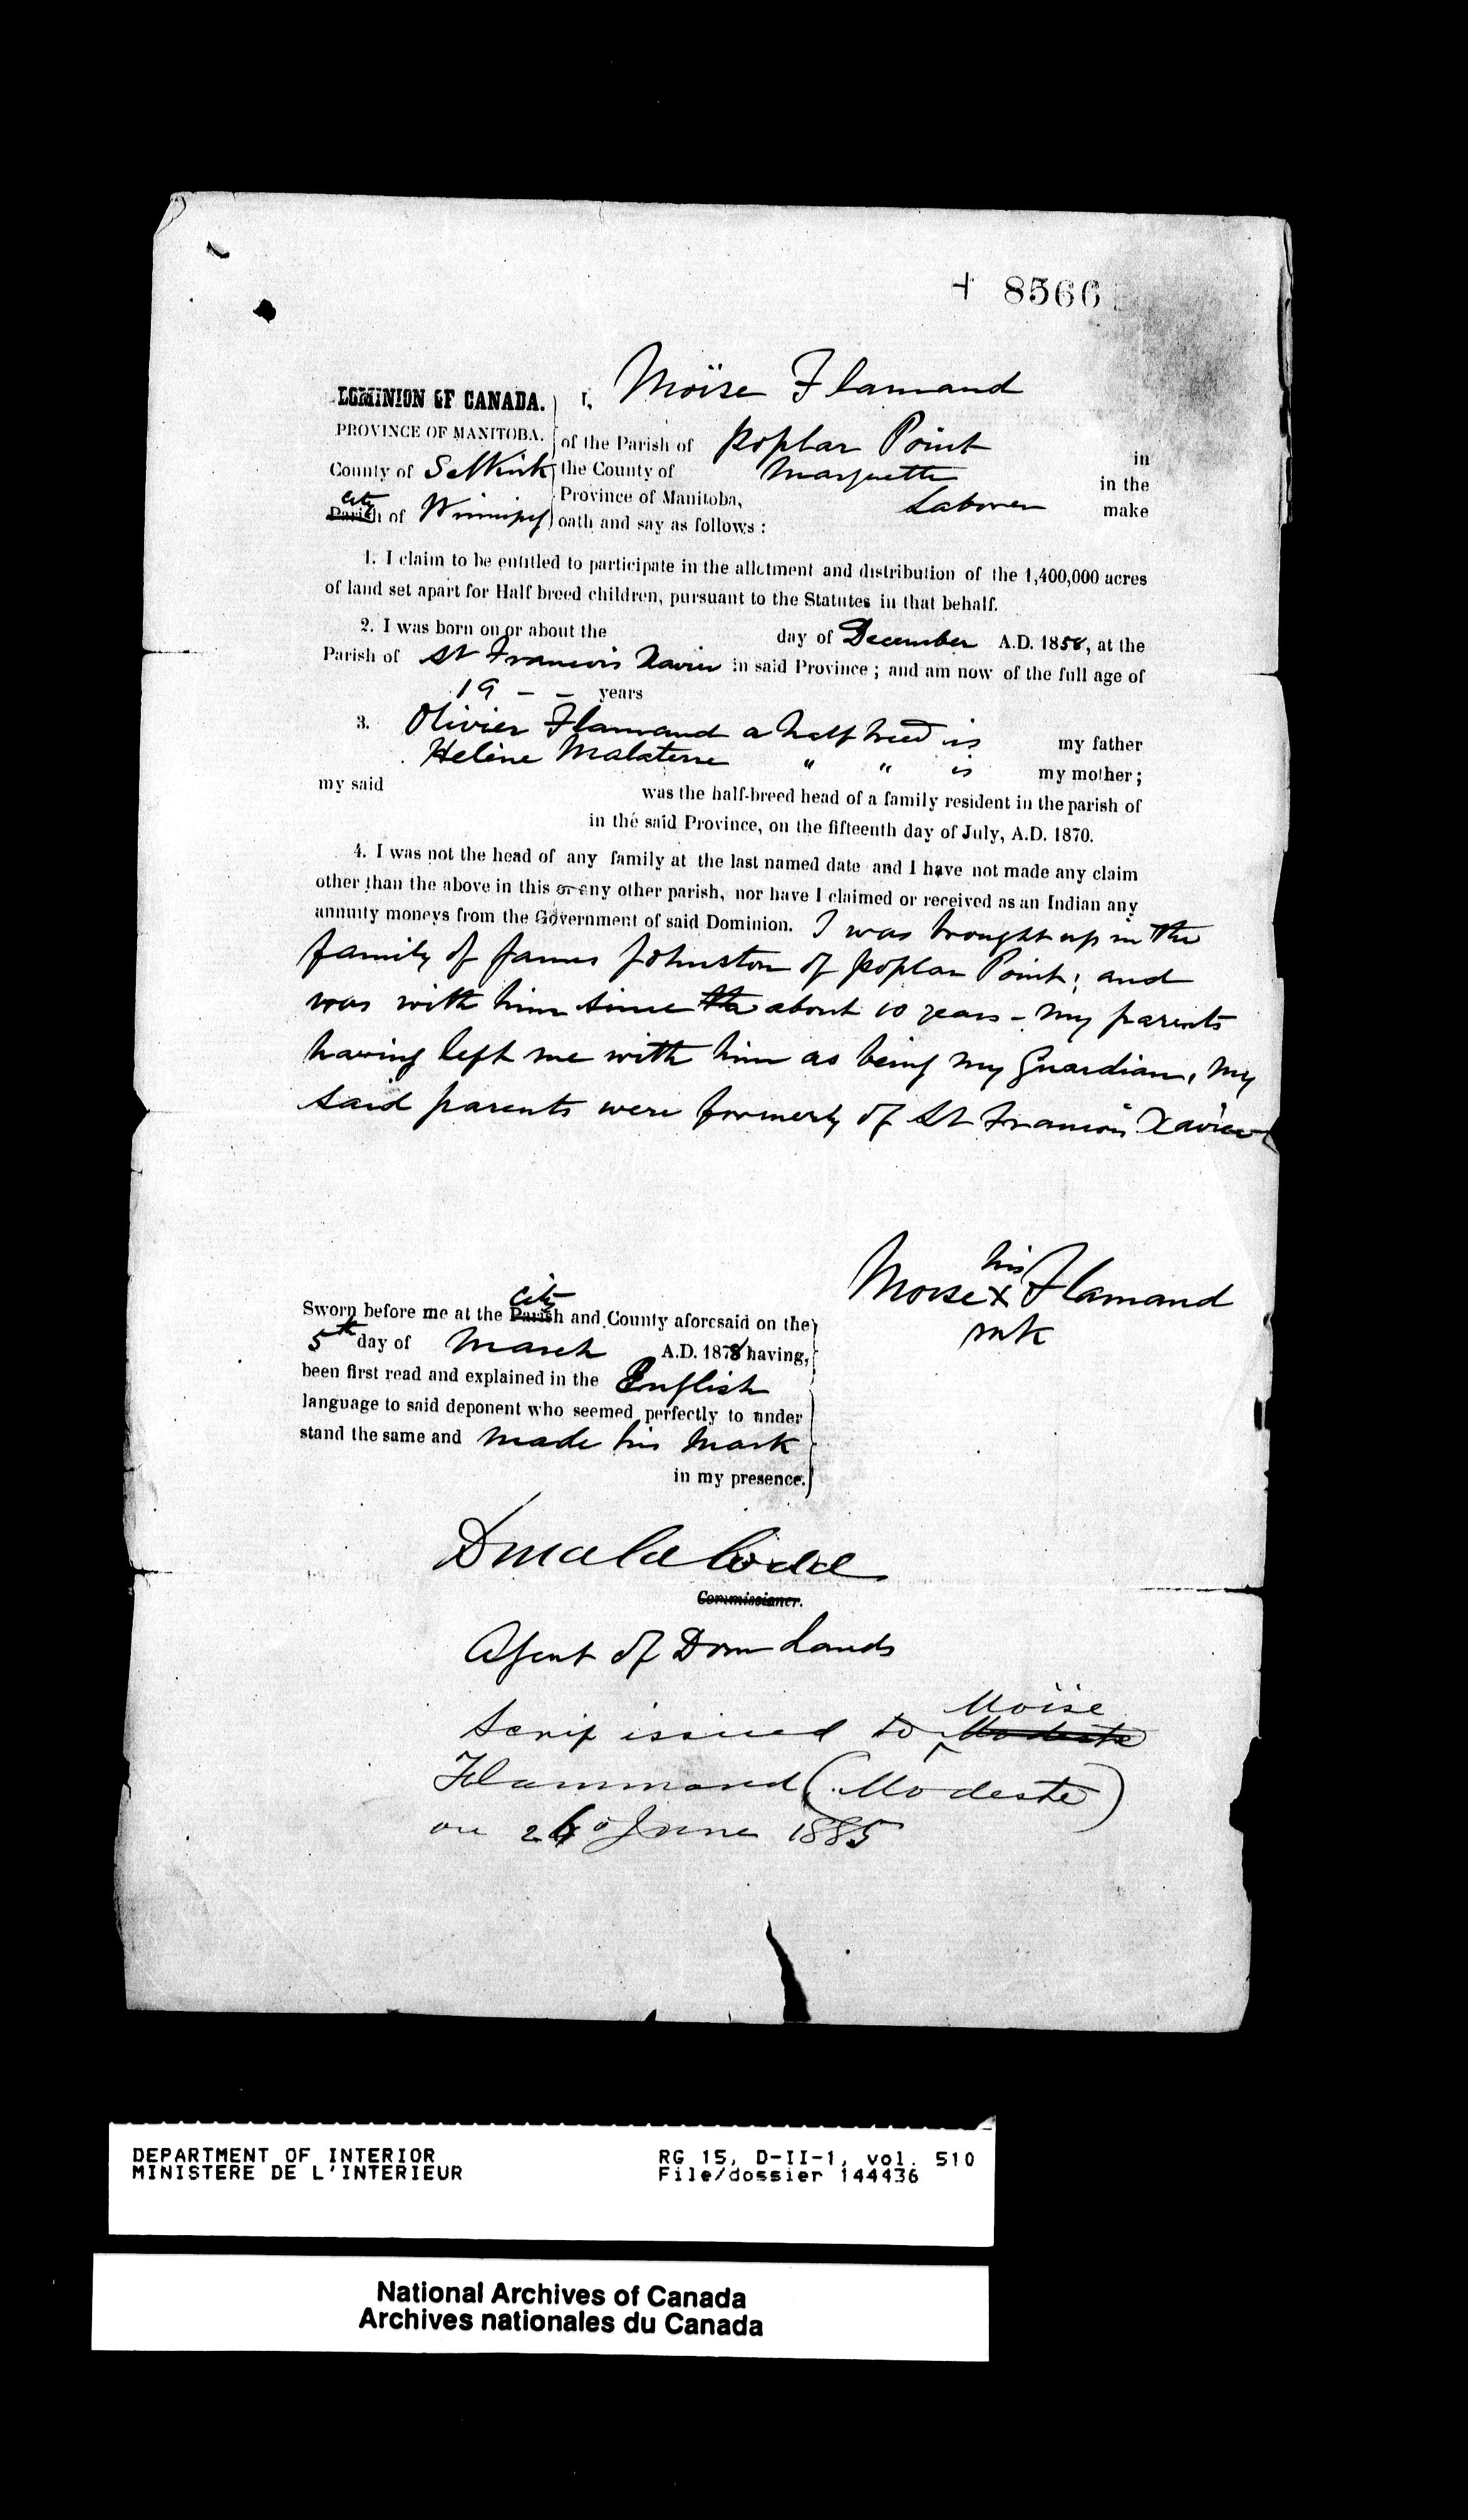 + 8566
DOMINION OF CANADA. I, Moïse Flamand
PROVINCE OF MANITOBA. of the Parish of Poplar Point in
County of Selkirk the County of Marquette in the
City
Parish of Winnipeg Province of Manitoba, Laborer make
oath and say as follows:
1. I claim to be entitled to participate in the allotment and distribution of the 1,400,000 acres
of land set apart for Half breed children, pursuant to the Statutes in that behalf.
2. I was born on or about the day of December A.D. 1858, at the
Parish of St Francois Xavier in said Province; and am now of the full age of
19 – – years
3. Olivier Flamand a half breed is my father
Helène Malaterre " " is my mother;
my said was the half-breed head of a family resident in the parish of
in the said Province, on the fifteenth day of July, A.D. 1870.
4. I was not the head of any family at the last named date and I have not made any claim
other than the above in this or any other parish, nor have I claimed or received as an Indian any
annuity moneys from the Government of said Dominion. I was brought up in the
family of James Johnston of Poplar Point; and
was with him since the about 10 years – my parents
having left me with him as being my Guardian, My
said parents were formerly of St Francois Xavier
his
Moise X Flamand
mk
City
Sworn before me at the Parish and County aforesaid on the
5th day of March A.D. 1878 having,
been first read and explained in the English
language to said deponent who seemed perfectly to under
stand the same and made his mark
in my presence.
Donald Codd
Commissioner.
Agent of Dom Lands
Moïse
Scrip issued to Modeste
Flammand (Modeste)
on 26 June 1885
DEPARTMENT OF INTERIOR RG 15, D-II-1, vol. 510
MINISTERE DE L'INTERIEUR File/dossier 144436
National Archives of Canada
Archives nationales du Canada